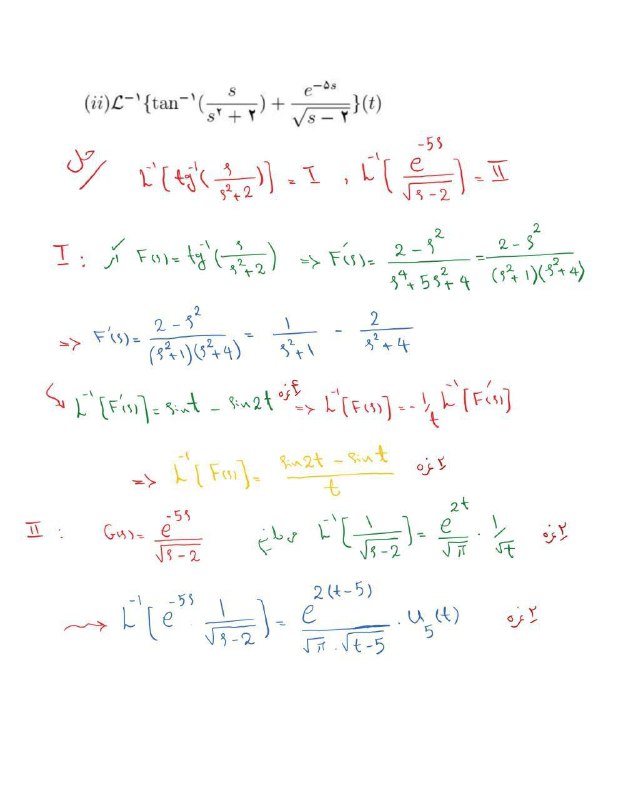 (ii) 𝓛⁻¹{tan⁻¹(s/(s²+۲)) + e^(-۵s)/√(s-۲)}(t)
حل L⁻¹[tg⁻¹(s/(s²+2))] = I , L⁻¹[e^(-5s)/√(s-2)] = II
I : اگر F(s) = tg⁻¹(s/(s²+2)) => F'(s) = (2-s²)/(s⁴+5s²+4) = (2-s²)/((s²+1)(s²+4))
=> F'(s) = (2-s²)/((s²+1)(s²+4)) = 1/(s²+1) - 2/(s²+4)
L⁻¹[F'(s)] = sint - sin2t ۴نمره => L⁻¹[F(s)] = -1/t L⁻¹[F'(s)]
=> L⁻¹[F(s)] = (sin2t - sint)/t ۲نمره
II : G(s) = e^(-5s)/√(s-2) می‌دانیم L⁻¹[1/√(s-2)] = e^(2t)/√π · 1/√t ۲نمره
L⁻¹[e^(-5s) · 1/√(s-2)] = e^(2(t-5))/(√π · √(t-5)) · u₅(t) ۲نمره